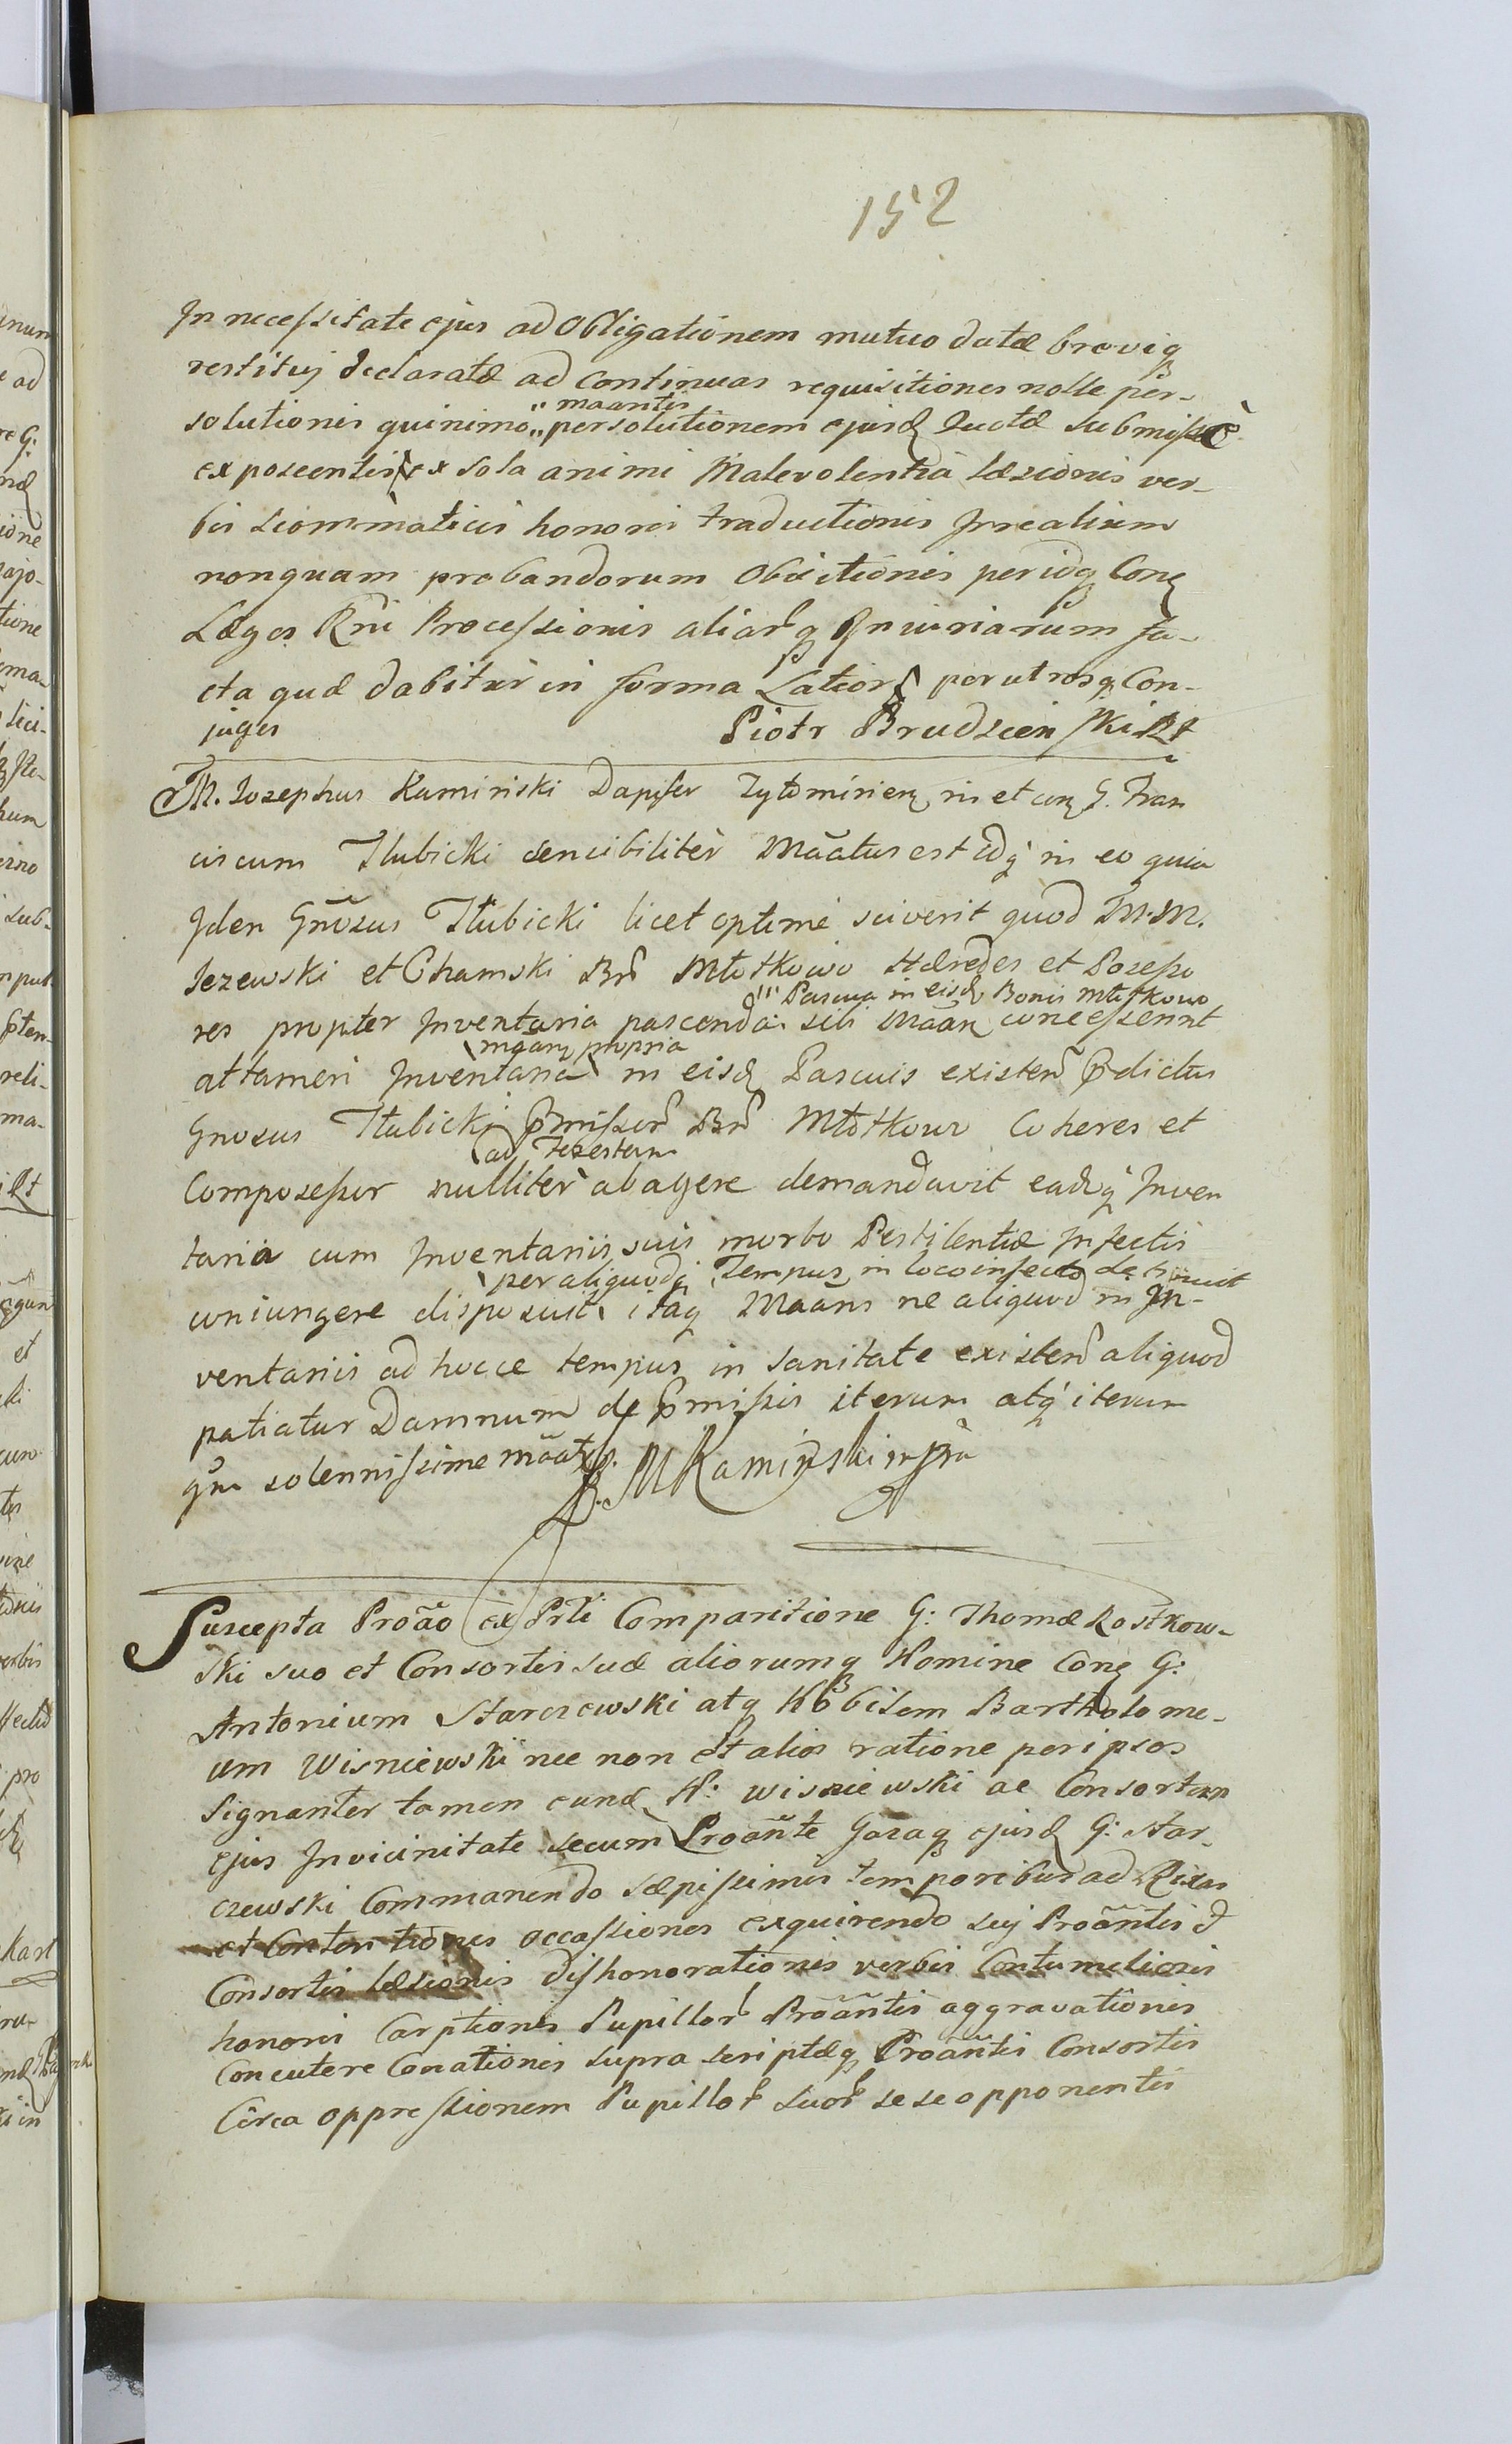 152
In necessitate ejus ad Obligationem mutuo datæ breviq
restituj declaratæ ad continuas requisitiones nolle per-
maantis
solutionis quinimo persolutionem ejusd quotæ submisse
exposcentis ex sola animi Malevolentia læsionis ver-
bis scommaticis honoris traductionis Irrealium
nonquam probandorum Obiicitionis per idq Conq
Leges Rni Processionis aliarq Injuriarum fa-
cta quæ dabitur in forma Latiori per utrosq Con-
juges
Piotr Brudzein ski
M. Josephus Kaminski Dapifer Zytominien in et con G. Fran
ciscum Tłubicki sencibiliter Maãtus est idq in eo quia
Idem Gnõsus Tłubicki licet optime sciverit quod M.M.
Jezewski et Chamski Brũ Młotkowo Hæredes et Possesso
Pascua in eisd Bonis Młotkowo
res propter Inventaria pascenda sibi Mãan concessernt
mãan propria
attamen Inventaria in eisd Pascuis existen p̃dictus
Gnosus Tłubicki p̃missor Brũ Młotkowo Coheres et
ad Jezestem
Compossessor nulliter abagere demandavit eadq Inven
taria cum Inventariis suis morbo Pestilentiæ Infectis
per aliquodq Tempus in loco infecto detinuit
coniungere disposuit itaq Maãns ne aliquod in In-
ventariis ad hocce tempus in sanitate existen aliquod
patiatur Damnum de p̃missis iterum atq iterum
qm solennissime mãatus.
MKaminski mpria
Suscepta Proão ex Prti Comparitione G: Thomæ Rostkow-
ski suo et Consortis suæ aliorumq Nomine Conq G:
Antonium Starczewski atq Nobilem Bartholome-
um Wisniewski nec non et alios ratione per ipsos
signanter tamen eund N: Wisniewski ac Consortem
ejus Invicinitate secum Proãnte Gazaq ejusd G: Star-
czewski Commanendo sæpissimis temporibus ad Rixas
et Contentiones occassiones exquirendo suj Proãntis et
Consortis læsionis dishonorationis verbis Contumeliosis
honoris Carptionis Pupillor Proãntis aggravationis
Concutere Conationis supra scriptæq Proãntis Consortis
Circa oppressionem Pupillor suor sese opponentis